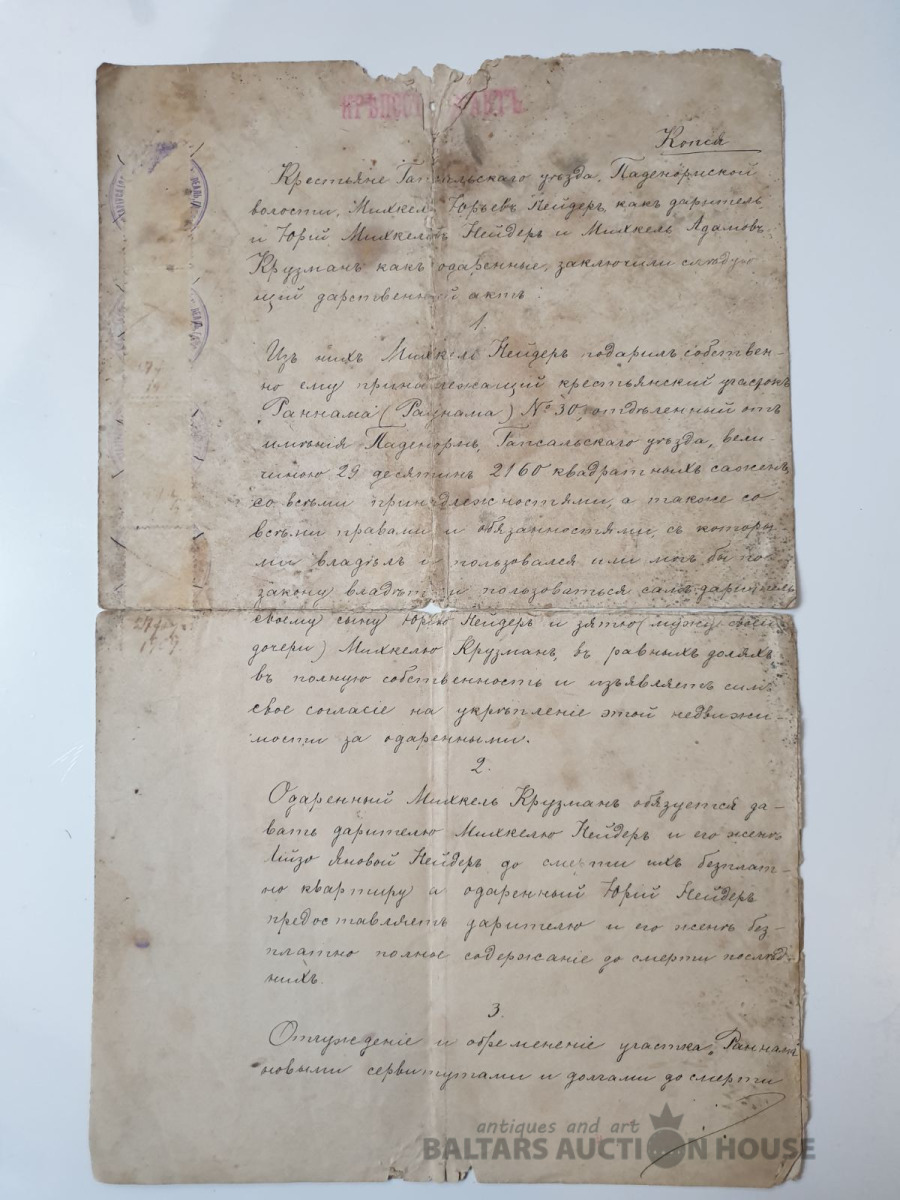 КРѢПОСТ АКТЪ.
Копія
Крестьяне Гапсальскаго уѣзда, Паденормской
волости, Михкель Юрьевъ Нейдеръ, какъ даритель,
и Юрій Михкелевъ Нейдеръ и Михкель Адамовъ
Крузманъ какъ одаренные, заключили слѣдую
щій дарственный актъ:
1.
Изъ нихъ Михкель Нейдеръ подарилъ собствен-
но ему принадлежащій крестьянскій участокъ
Раннама (Раунама) № 30, отдѣленный отъ
имѣнія Паденормъ, Гапсальскаго уѣзда, вели-
чиною 29 десятинъ 2160 квадратныхъ сажень,
со всѣми принадлежностями, а также со
всѣми правами и обязанностями, съ которы-
ми владѣлъ и пользовался или могъ бы по
закону владѣть и пользоваться самъ даритель
своему сыну Юрію Нейдеръ и зятю (мужу своей
дочери) Михкелю Крузманъ, въ равныхъ доляхъ
въ полную собственность и изъявляетъ симъ
свое согласіе на укрѣпленіе этой недвижи-
мости за одаренными.
2.
Одаренный Михкель Крузманъ обязуется да-
вать дарителю Михкелю Нейдеръ и его женѣ
Лійзо Яновой Нейдеръ до смерти ихъ безплат-
но квартиру а одаренный Юрій Нейдеръ
предоставляетъ дарителю и его женѣ без-
платно полное содержаніе до смерти послѣд-
нихъ.
3.
Отчужденіе и обремененіе участка "Раннама"
новыми сервитутами и долгами до смерти
antiques and art
BALTARS AUCTION HOUSE